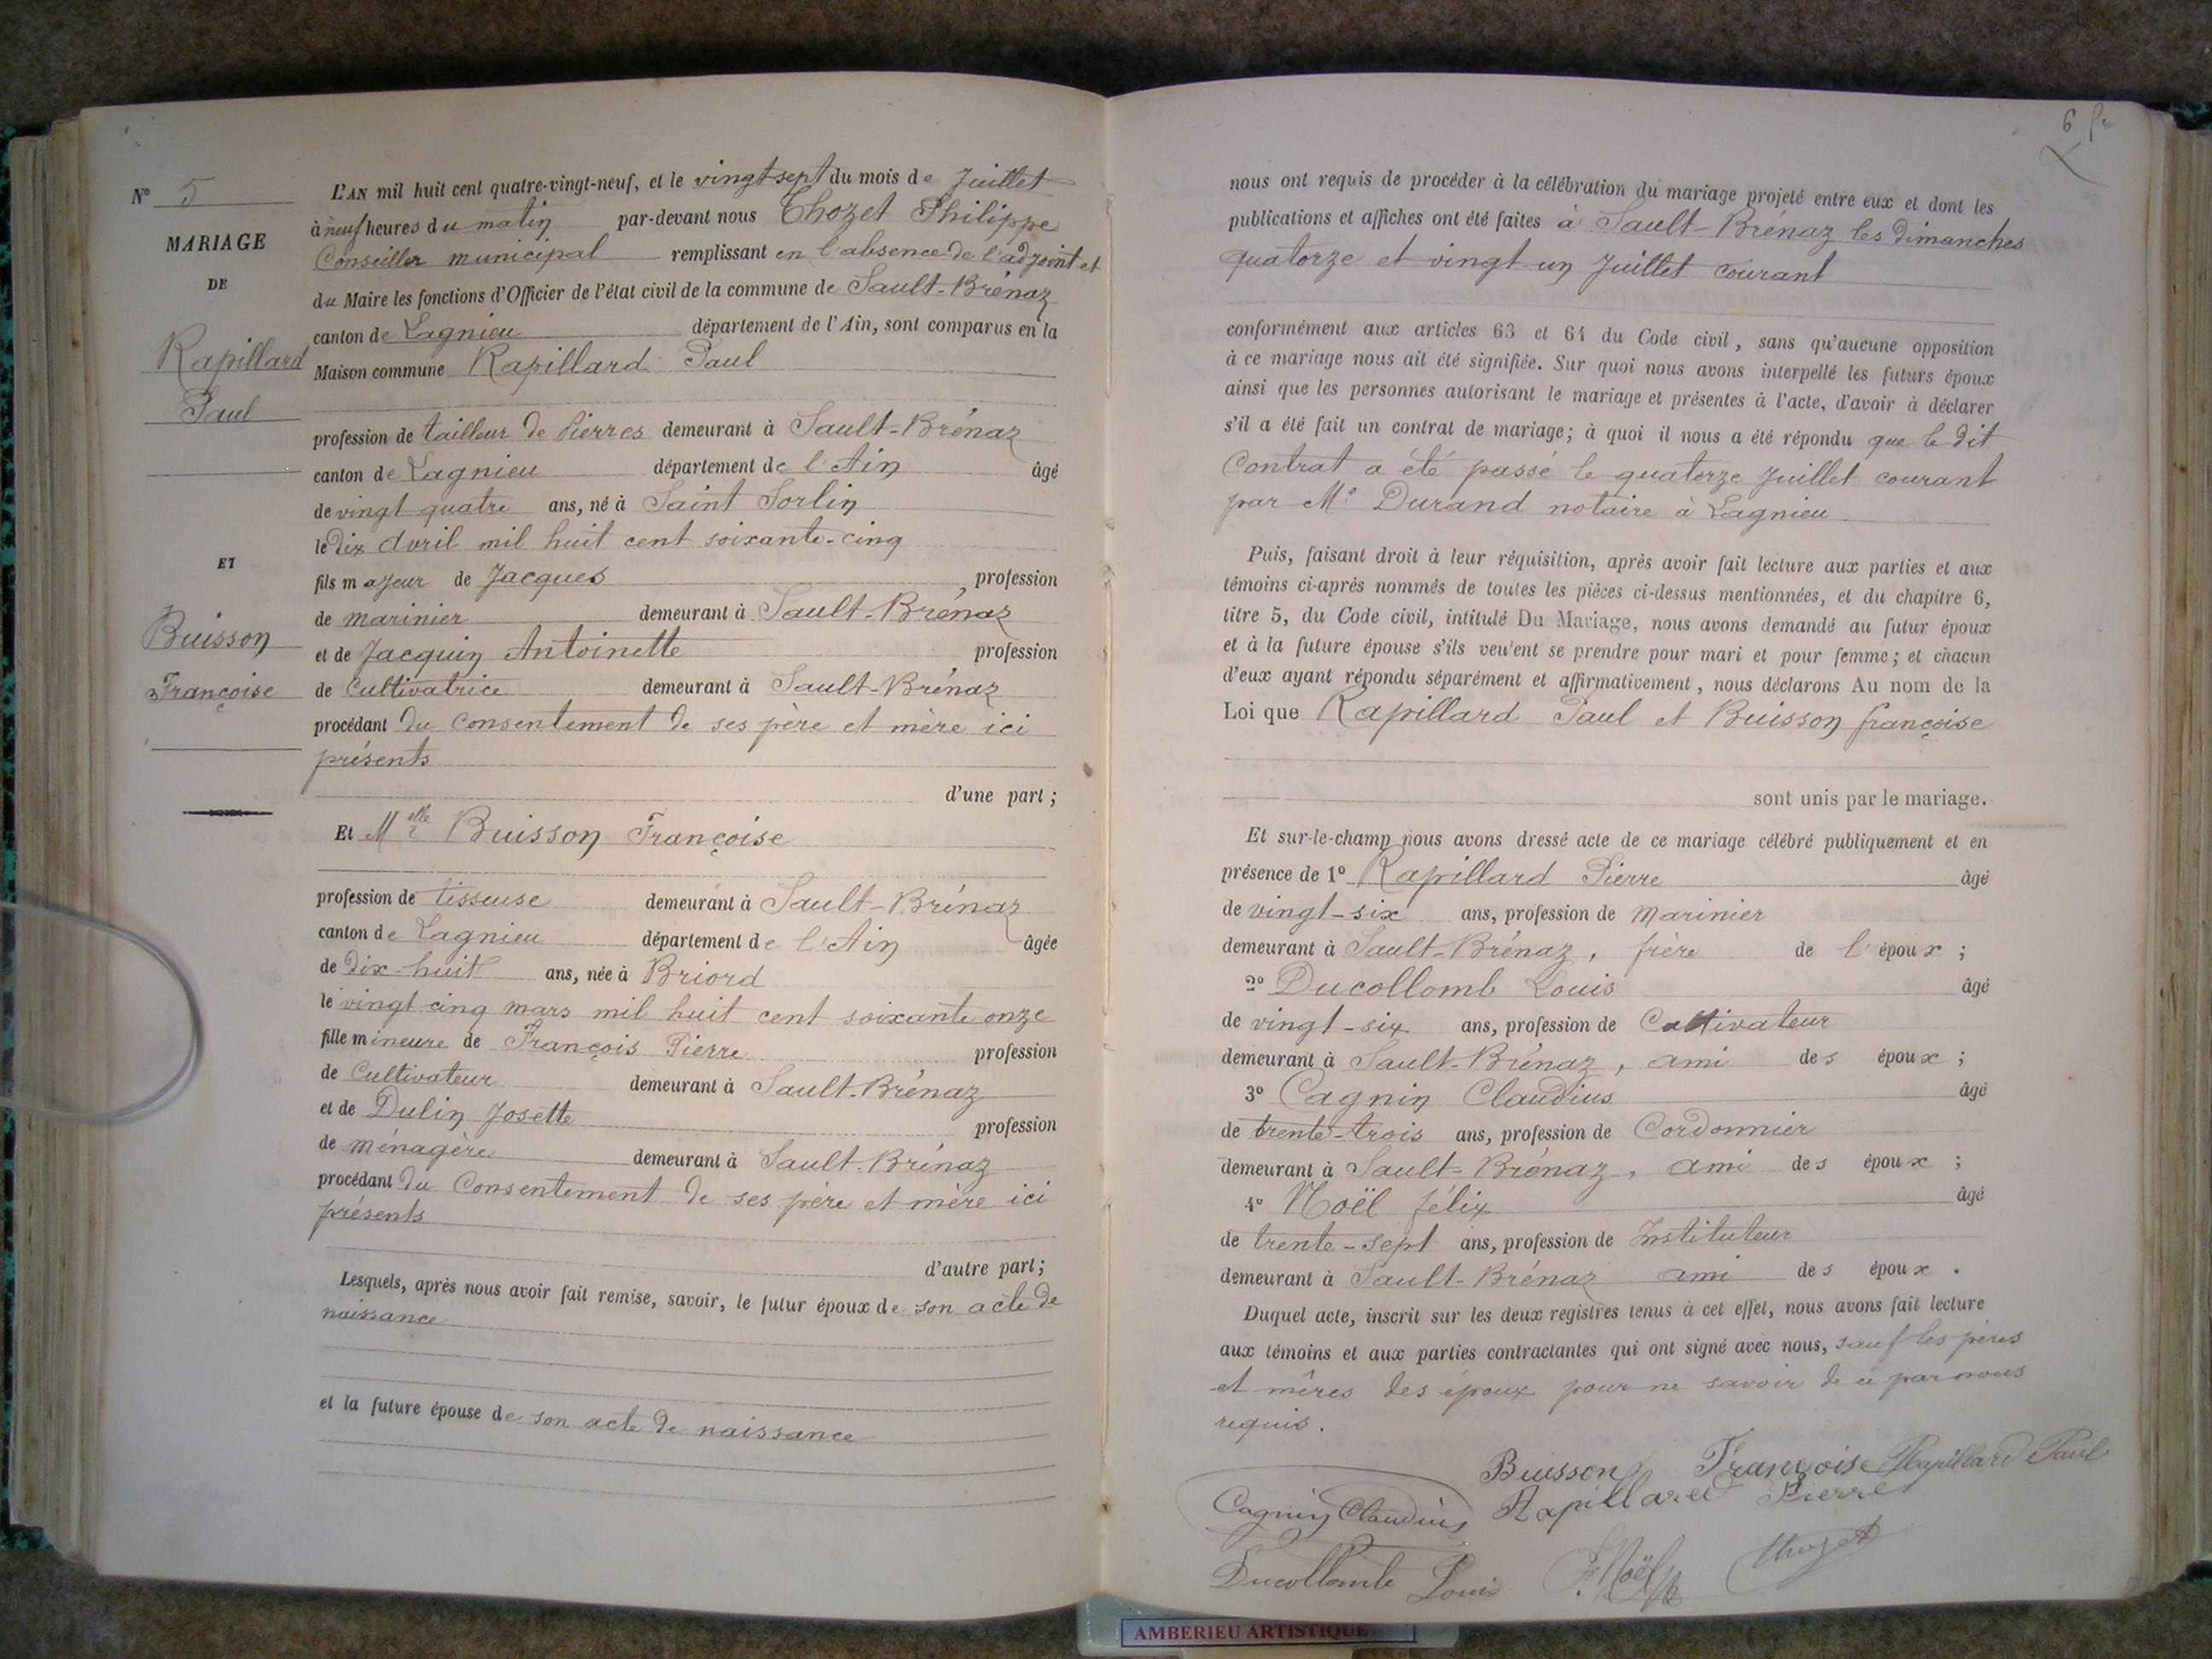 N° 5
MARIAGE
DE
Rapillard
Paul
ET
Buisson
Françoise
L'AN mil huit cent quatre-vingt-neuf, et le vingt sept du mois de Juillet
à neuf heures du matin par-devant nous Thozet Philippe
Conseiller municipal remplissant en l'absence de l'adjoint et
du Maire les fonctions d'Officier de l'état civil de la commune de Sault-Brénaz
canton de Lagnieu département de l'Ain, sont comparus en la
Maison commune Rapillard Paul
profession de tailleur de Pierres demeurant à Sault-Brénaz
canton de Lagnieu département de l'Ain âgé
de vingt quatre ans, né à Saint Sorlin
le Dix Avril mil huit cent soixante-cinq
fils majeur de Jacques profession
de marinier demeurant à Sault-Brénaz
et de Jacquin Antoinette profession
de Cultivatrice demeurant à Sault-Brénaz
procédant du Consentement de ses père et mère ici
présents
d'une part ;
Et Melle Buisson Françoise
profession de tisseuse demeurant à Sault-Brénaz
canton de Lagnieu département de l'Ain âgée
de Dix-huit ans, née à Briord
le vingt cinq mars mil huit cent soixante onze
fille mineure de François Pierre profession
de Cultivateur demeurant à Sault-Brénaz
et de Dulin Josette profession
de ménagère demeurant à Sault-Brénaz
procédant du Consentement de ses père et mère ici
présents
d'autre part ;
Lesquels, après nous avoir fait remise, savoir, le futur époux de son acte de
naissance
et la future épouse de son acte de naissance
6
nous ont requis de procéder à la célébration du mariage projeté entre eux et dont les
publications et affiches ont été faites à Sault-Brénaz les dimanches
quatorze et vingt un Juillet courant
conformément aux articles 63 et 64 du Code civil, sans qu'aucune opposition
à ce mariage nous ait été signifiée. Sur quoi nous avons interpellé les futurs époux
ainsi que les personnes autorisant le mariage et présentes à l'acte, d'avoir à déclarer
s'il a été fait un contrat de mariage; à quoi il nous a été répondu que le dit
Contrat a été passé le quatorze Juillet courant
par Me Durand notaire à Lagnieu
Puis, faisant droit à leur réquisition, après avoir fait lecture aux parties et aux
témoins ci-après nommés de toutes les pièces ci-dessus mentionnées, et du chapitre 6,
titre 5, du Code civil, intitulé Du Mariage, nous avons demandé au futur époux
et à la future épouse s'ils veulent se prendre pour mari et pour femme; et chacun
d'eux ayant répondu séparément et affirmativement, nous déclarons Au nom de la
Loi que Rapillard Paul et Buisson françoise
sont unis par le mariage.
Et sur-le-champ nous avons dressé acte de ce mariage célébré publiquement et en
présence de 1° Rapillard Pierre âgé
de vingt-six ans, profession de Marinier
demeurant à Sault-Brénaz, frère de l'époux ;
2° Ducollomb Louis âgé
de vingt-six ans, profession de Cultivateur
demeurant à Sault-Brénaz, ami des époux ;
3° Cagnin Claudius âgé
de trente-trois ans, profession de Cordonnier
demeurant à Sault-Brénaz, ami des époux ;
4° Noël félix âgé
de trente-sept ans, profession de Instituteur
demeurant à Sault-Brénaz ami des époux.
Duquel acte, inscrit sur les deux registres tenus à cet effet, nous avons fait lecture
aux témoins et aux parties contractantes qui ont signé avec nous, sauf les pères
et mères des époux pour ne savoir de ce par nous
requis.
Buisson Françoise Rapillard Paul
Cagnin Claudius Rapillard Pierre
Ducollomb Louis F. Noël Thozet
AMBERIEU ARTISTIQUE